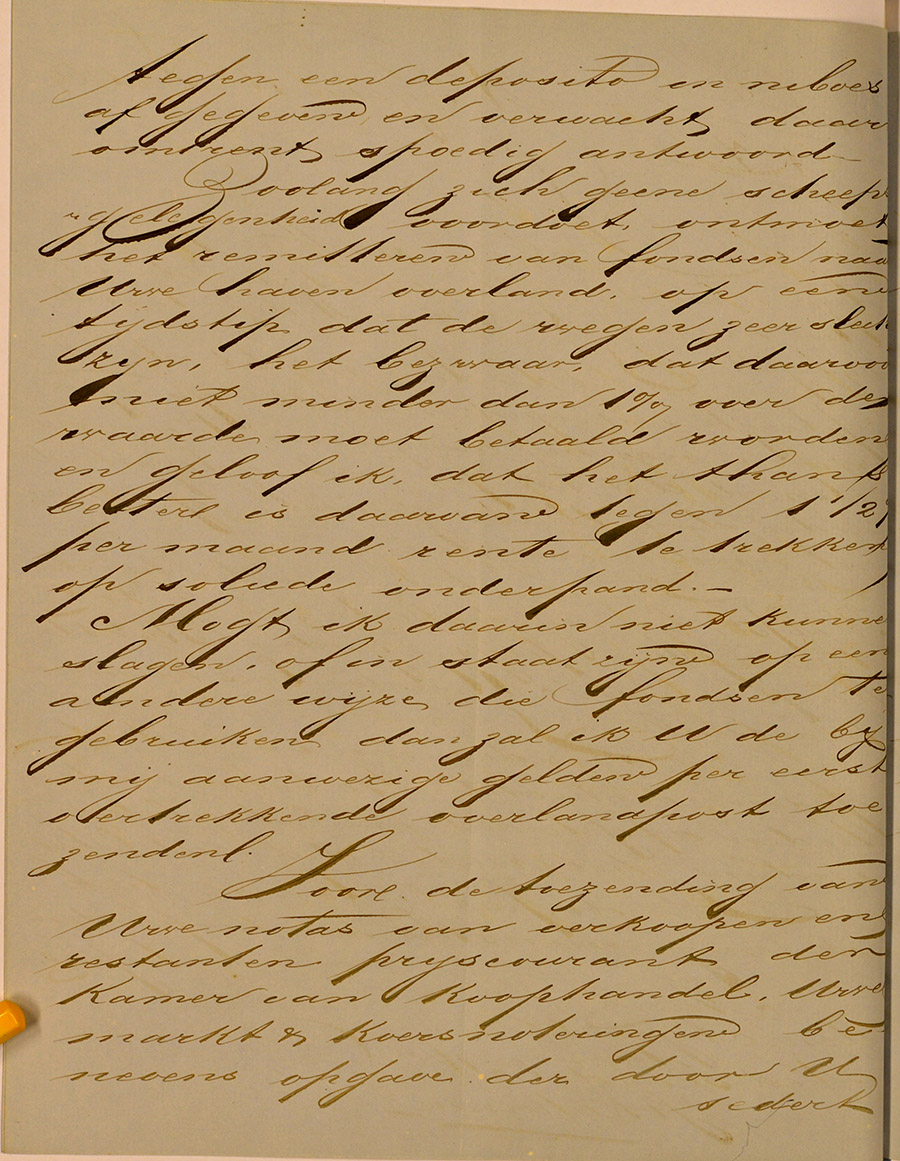 tegen een deposito in reboes
af gegeven en verwacht daar
omtrent spoedig antwoord
Zoolang zich geene scheeps
gelegenheid voordoet, ontmoet
het remitteren van fondsen naar
Uwe haven overland, op een
tijdstip dat de wegen zeer slecht
zyn, het bezwaar, dat daarvoor
niet minder dan 1% over de
waarde moet betaald worden
en geloof ik, dat het thans
beeter is daarvan tegen 1 1/2%
per maand rente te trekken
op soliede onderpand.-
Mogt ik daarin niet kunnen
slagen, of in staat zijn op een
andere wijze die fondsen te
gebruiken dan zal ik U de by
mij aanwezige gelden per eerst
vertrekkende overlandpost toe
zenden.
Voor de toezending van
Uwe notas van verkoopen en
restanten pryscourant der
Kamer van Koophandel, Uwe
markt & Koersnoteringen be
nevens opgave der door U
sedert